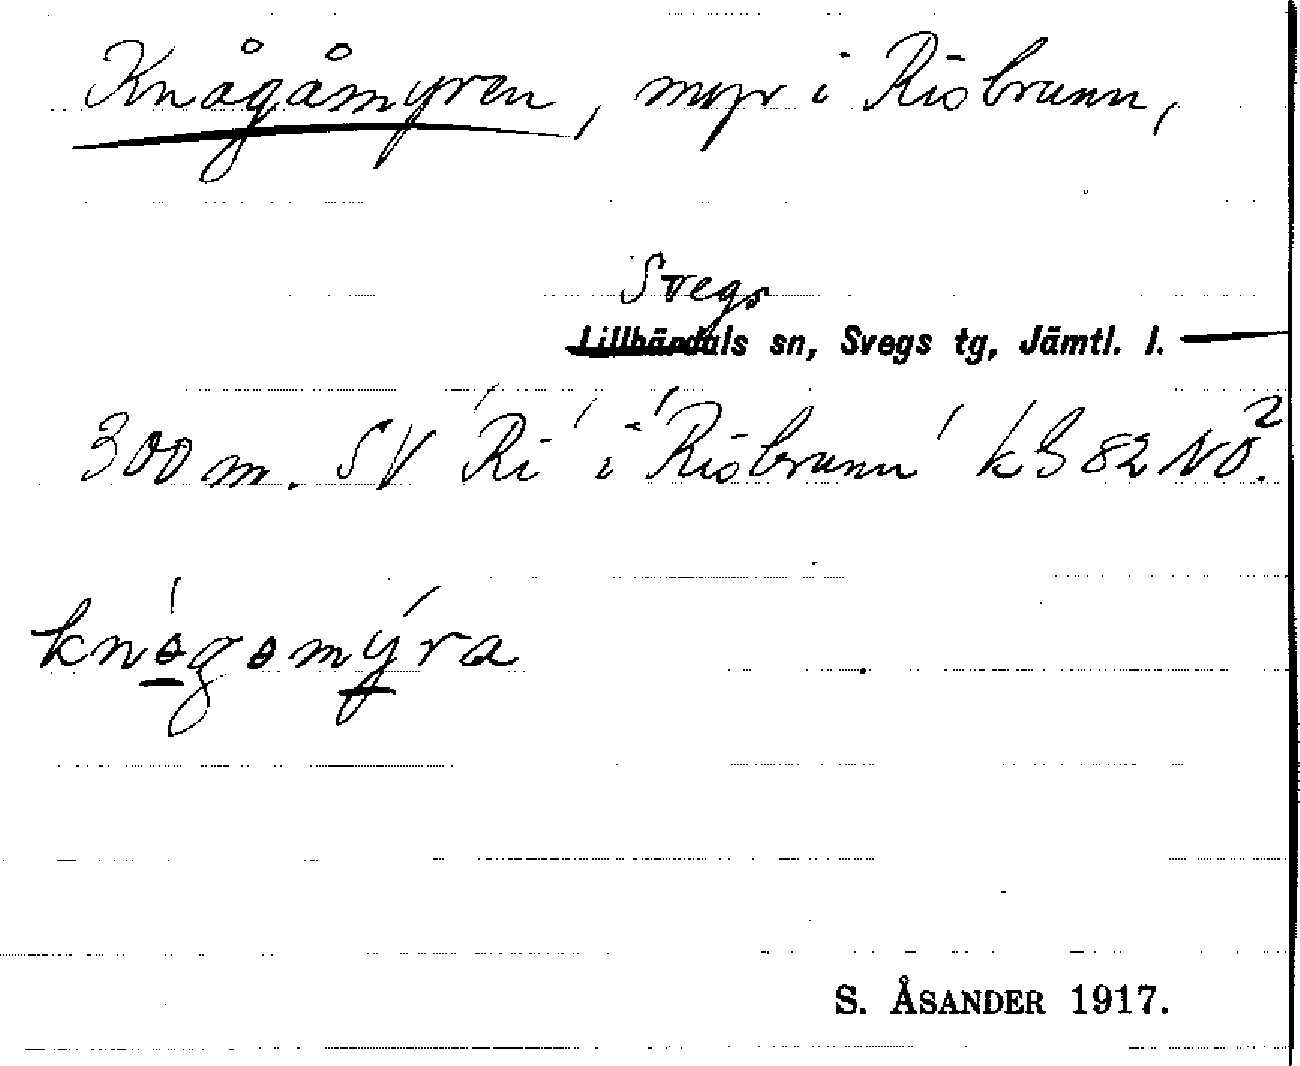 Knågåmyren, myr i Risbrunn,
Svegs
Lillhärdals sn, Svegs tg, Jämtl. l. —
300 m. SV 'Ri' i 'Risbrunn' kS 82 NO².
knógomýra
S. ÅSANDER 1917.